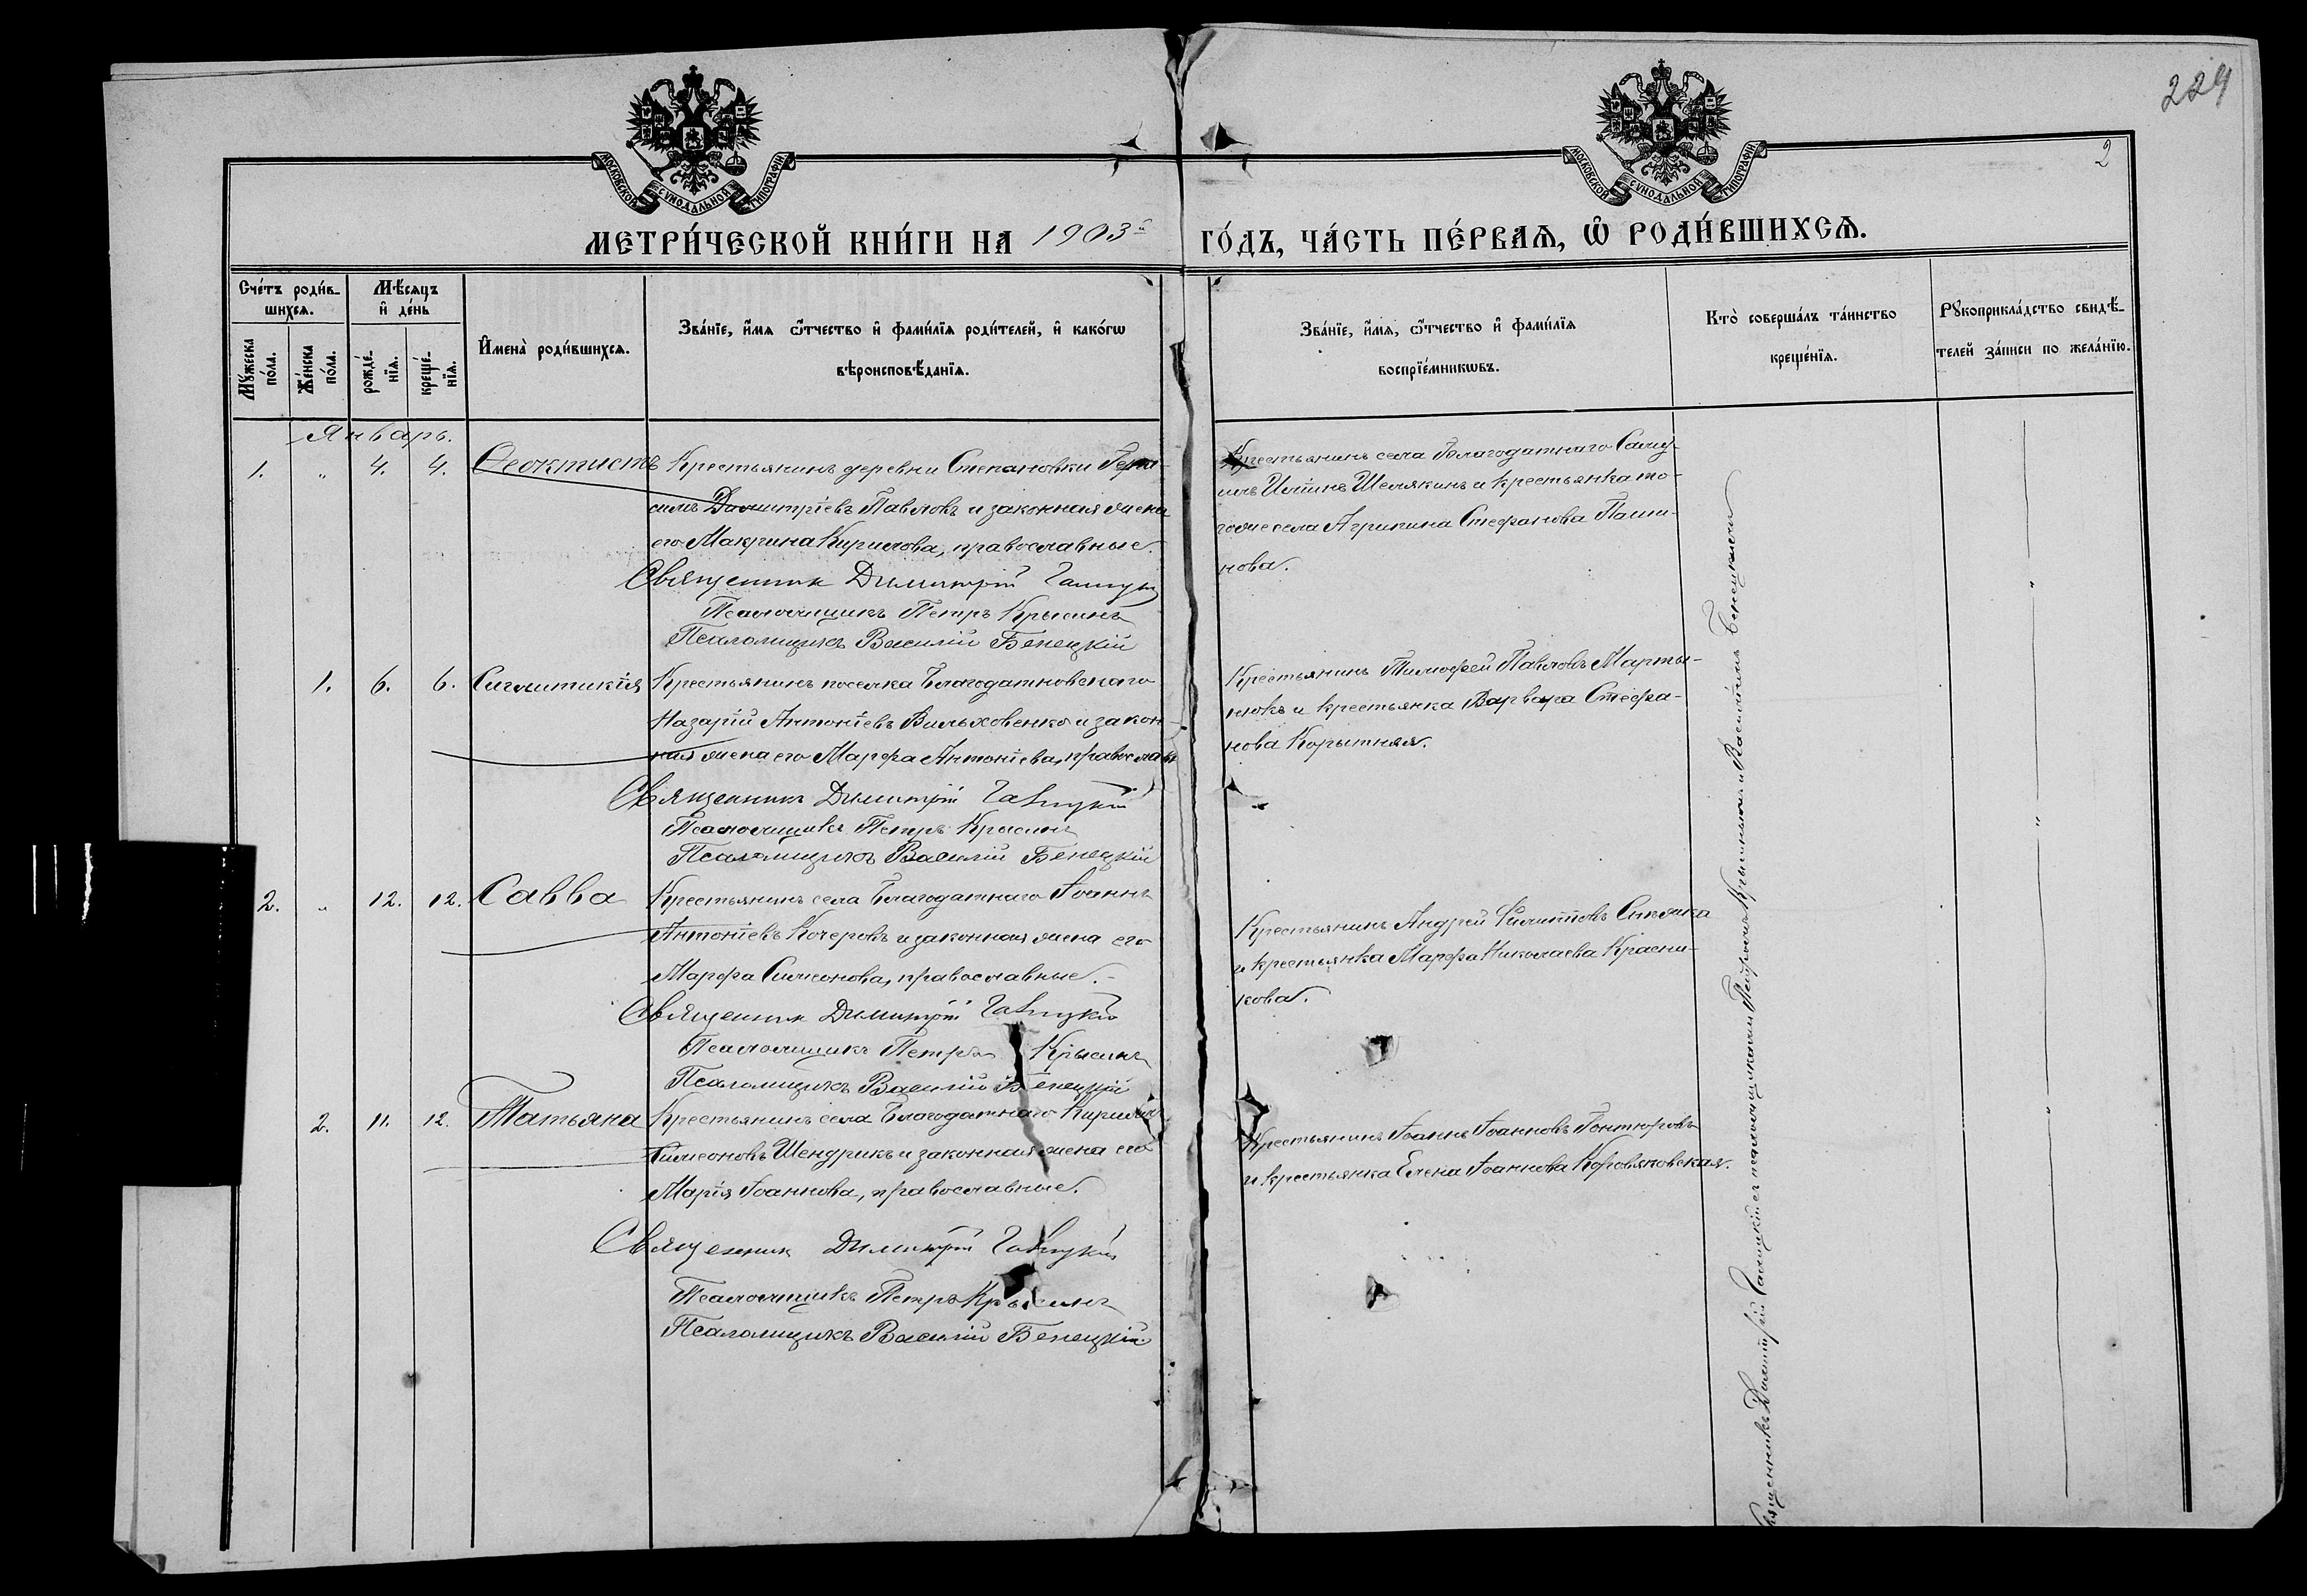 229
2
МОСКОВСКОЙ СѴНОДАЛЬНОЙ ТИПОГРАФІИ
МОСКОВСКОЙ СѴНОДАЛЬНОЙ ТИПОГРАФІИ
МЕТРИ́ЧЕСКОЙ КНИ́ГИ НА 1903й ГО́ДЪ, ЧА́СТЬ ПЕ́РВАѦ, Ѡ҆ РОДИ́ВШИХСѦ.
Сче́тъ роди́в-
шихсѧ.
Мꙋ́жеска по́ла.
Же́нска по́ла.
Мѣ́сѧцъ
и҆ де́нь
рожде́-
нїѧ.
креще́-
нїѧ.
И҆мена̀ роди́вшихсѧ.
Зва́нїе, и҆́мѧ ѻ҆́тчество и҆ фами́лїѧ роди́телей, и҆ како́гѡ
вѣроисповѣ́данїѧ.
Зва́нїе, и҆́мѧ, ѻ҆́тчество и҆ фами́лїѧ
воспрїе́мникѡвъ.
Кто̀ соверша́лъ та́инство
креще́нїѧ.
Рꙋкоприкла́дство свидѣ́-
телей за́писи по жела́нїю.
Январь.
1. „ 4. 4. Ѳеоктистъ Крестьянинъ деревни Степановки Гера-
симъ Димитріевъ Павловъ и законная жена
его Макрина Кирилова, православные.
Священник Димитрій
Псаломщикъ Петръ Крысинъ
Псаломщикъ Василій Бенецкій
Крестьянинъ села Благодатнаго Саму-
илъ Шелякинъ и крестьянка то-
гоже села Агрипина Стефанова Паши-
нова.
1. 6. 6. Сигклитикія Крестьянинъ поселка Благодатновскаго
Назарій Антоніевъ Вильховенко и закон-
ная жена его Марфа Антоніева, православн
Священник Димитрій Галицкій
Псаломщикъ Петръ Крысинъ
Псаломщикъ Василій Бенецкій
Крестьянинъ Тимофей Павловъ Марты-
нюкъ и крестьянка Варвара Стефа-
нова Корытняя.
2. „ 12. 12. Савва Крестьянинъ села Благодатнаго Іоаннъ
Антоніевъ Кочеровъ и законная жена его
Марфа Симеонова, православные.
Священник Димитрій Галицкій
Псаломщикъ Петръ Крысинъ
Псаломщикъ Василій Бенецкій
Крестьянинъ Андрей Филиповъ
и крестьянка Марфа Николаева Красни-
кова.
2. 11. 12. Татьяна Крестьянинъ села Благодатнаго Кириллъ
Симеоновъ Шендрикъ и законная жена его
Марія Іоаннова, православные.
Священник Димитрій Галицкій
Псаломщикъ Петръ Крысинъ
Псаломщикъ Василій Бенецкій
Крестьянинъ Іоаннъ Іоанновъ Гонтюровъ
и крестьянка Елена Іоаннова Коровяковская.
Священникъ Димитрій Галицкій съ псаломщиками Петромъ Крысинымъ и Василіемъ Бенецкимъ